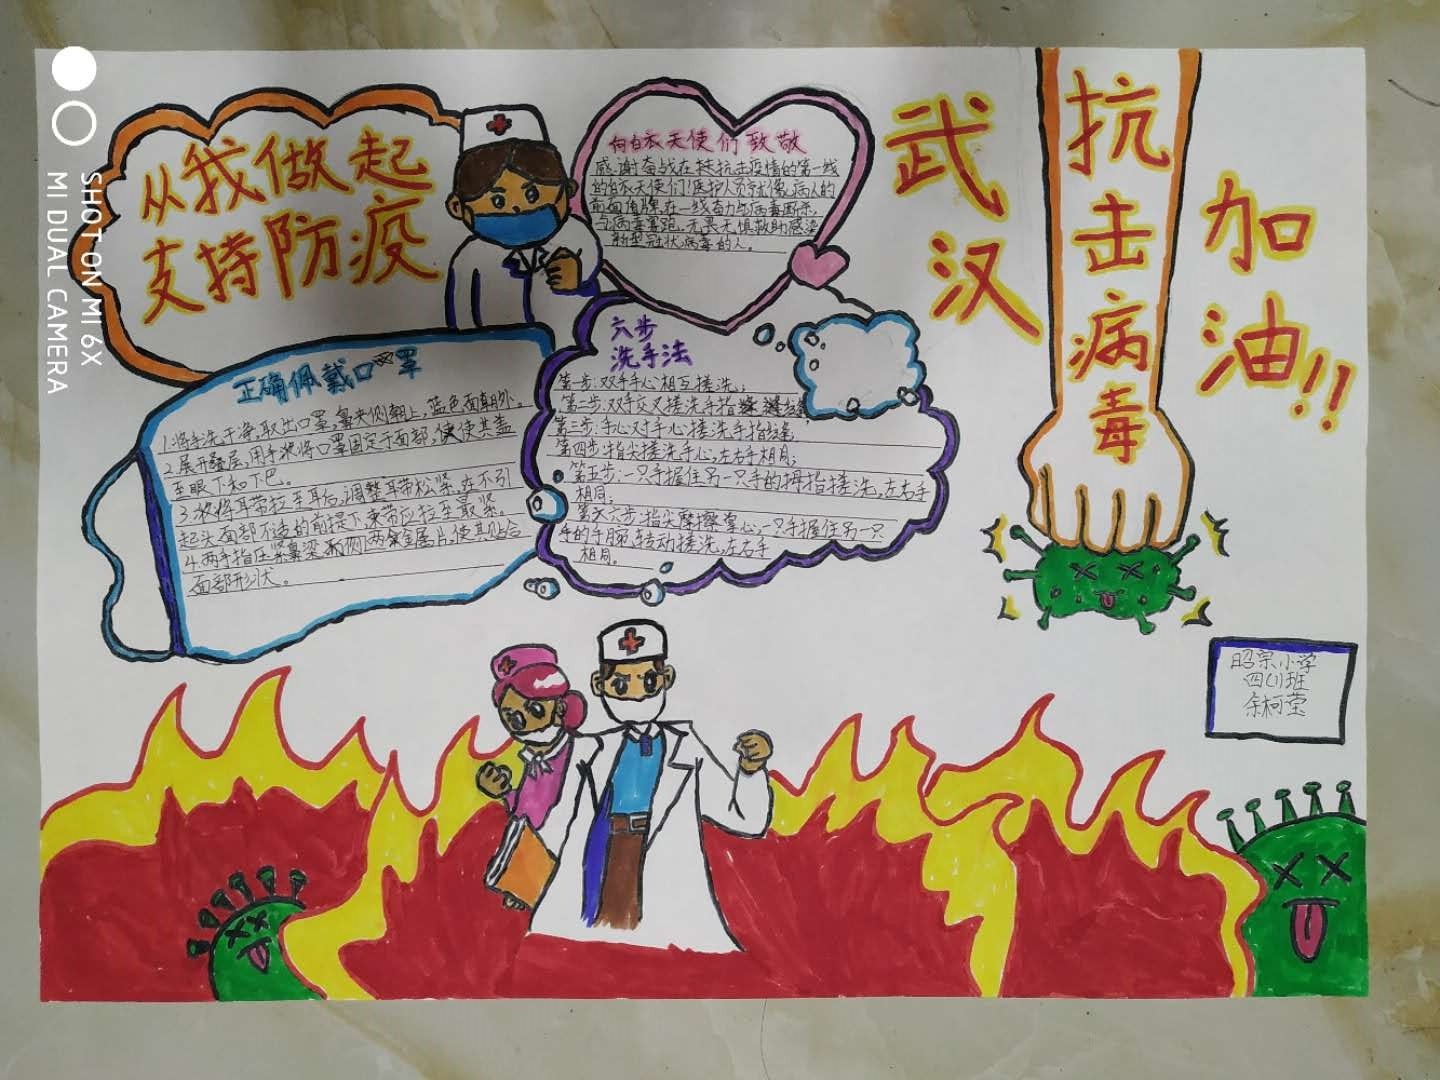 从我做起
支持防疫
向白衣天使们致敬
感谢奋战在抗击疫情的第一线
的白衣天使们!医护人员就像病人的
前面盾牌,在一线奋力与病毒厮杀,
与病毒赛跑,无畏无惧救助感染
新型冠状病毒的人。
武汉
加油!!
抗击病毒
正确佩戴口罩
1.将手洗干净,取出口罩,鼻夹侧朝上,蓝色面朝外。
2.展开叠层,用手将口罩固定于面部,使其盖
至眼下和下巴。
3.将耳带拉至耳后,调整耳带松紧,在不引
起头面部不适的前提下束带应拉至最紧。
4.两手指压紧鼻梁两侧金属片,使其贴合
面部形状。
六步
洗手法
第一步:双手手心相互搓洗;
第二步:双手交叉搓洗手指缝;
第三步:手心对手心搓洗手指缝,
第四步:指尖搓洗手心,左右手相同;
第五步:一只手握住另一只手的拇指搓洗,左右手
相同;
第六步:指尖摩擦掌心,一只手握住另一只
手的手腕转动搓洗,左右手
相同。
昭宗小学
四(1)班
余柯莹
SHOT ON MI 6X
MI DUAL CAMERA